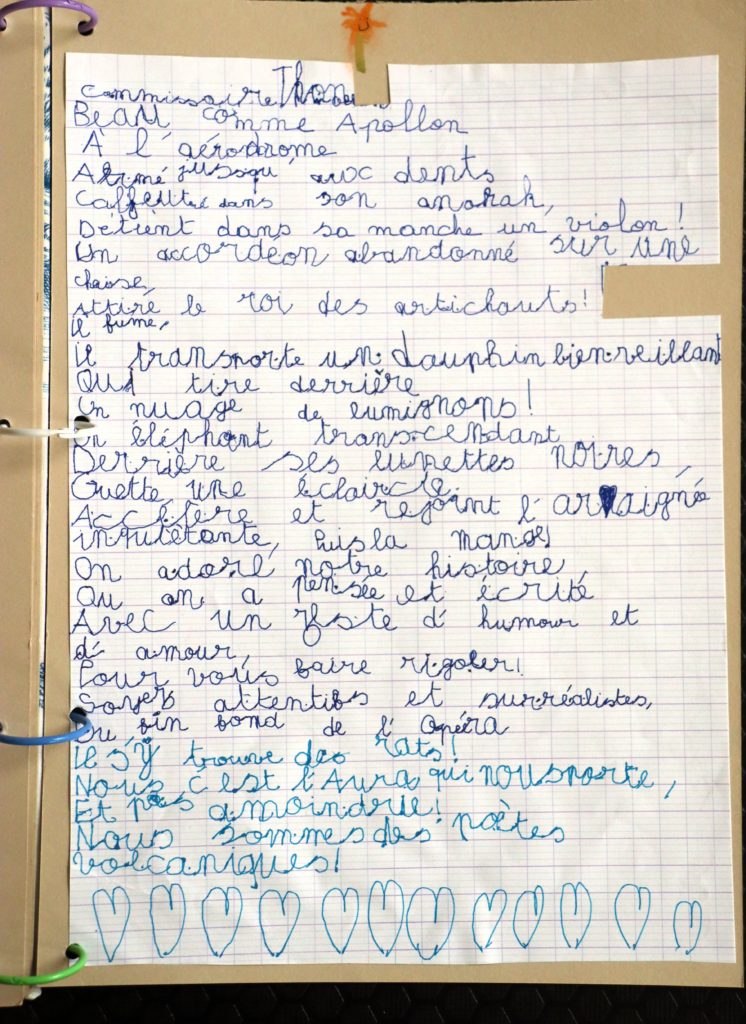 commissaire Thon
Beau comme Apollon
À l'aérodrome
Armé jusqu'aux dents
Calfeutré dans son anorak,
Détient dans sa manche un violon !
Un accordéon abandonné sur une
chaise,
Attire le roi des artichauts !
Il fume,
Il transporte un dauphin bienveillant
Qui tire derrière
Un nuage de lumignons !
Un éléphant transcendant
Derrière ses lunettes noires,
Guette une éclaircie.
Accélère et rejoint l'araigné
inquiétante, puis la mange
On adore notre histoire,
Qu'on a pensée et écrite
Avec un zeste d'humour et
d'amour,
Pour vous faire rigoler !
Soyez attentifs et surréalistes,
Du fin fond de l'Opéra
Il s'y trouve des rats !
Nous, c'est l'Aura qui nous porte,
Et pas amoindrie !
Nous sommes des poètes
volcaniques !